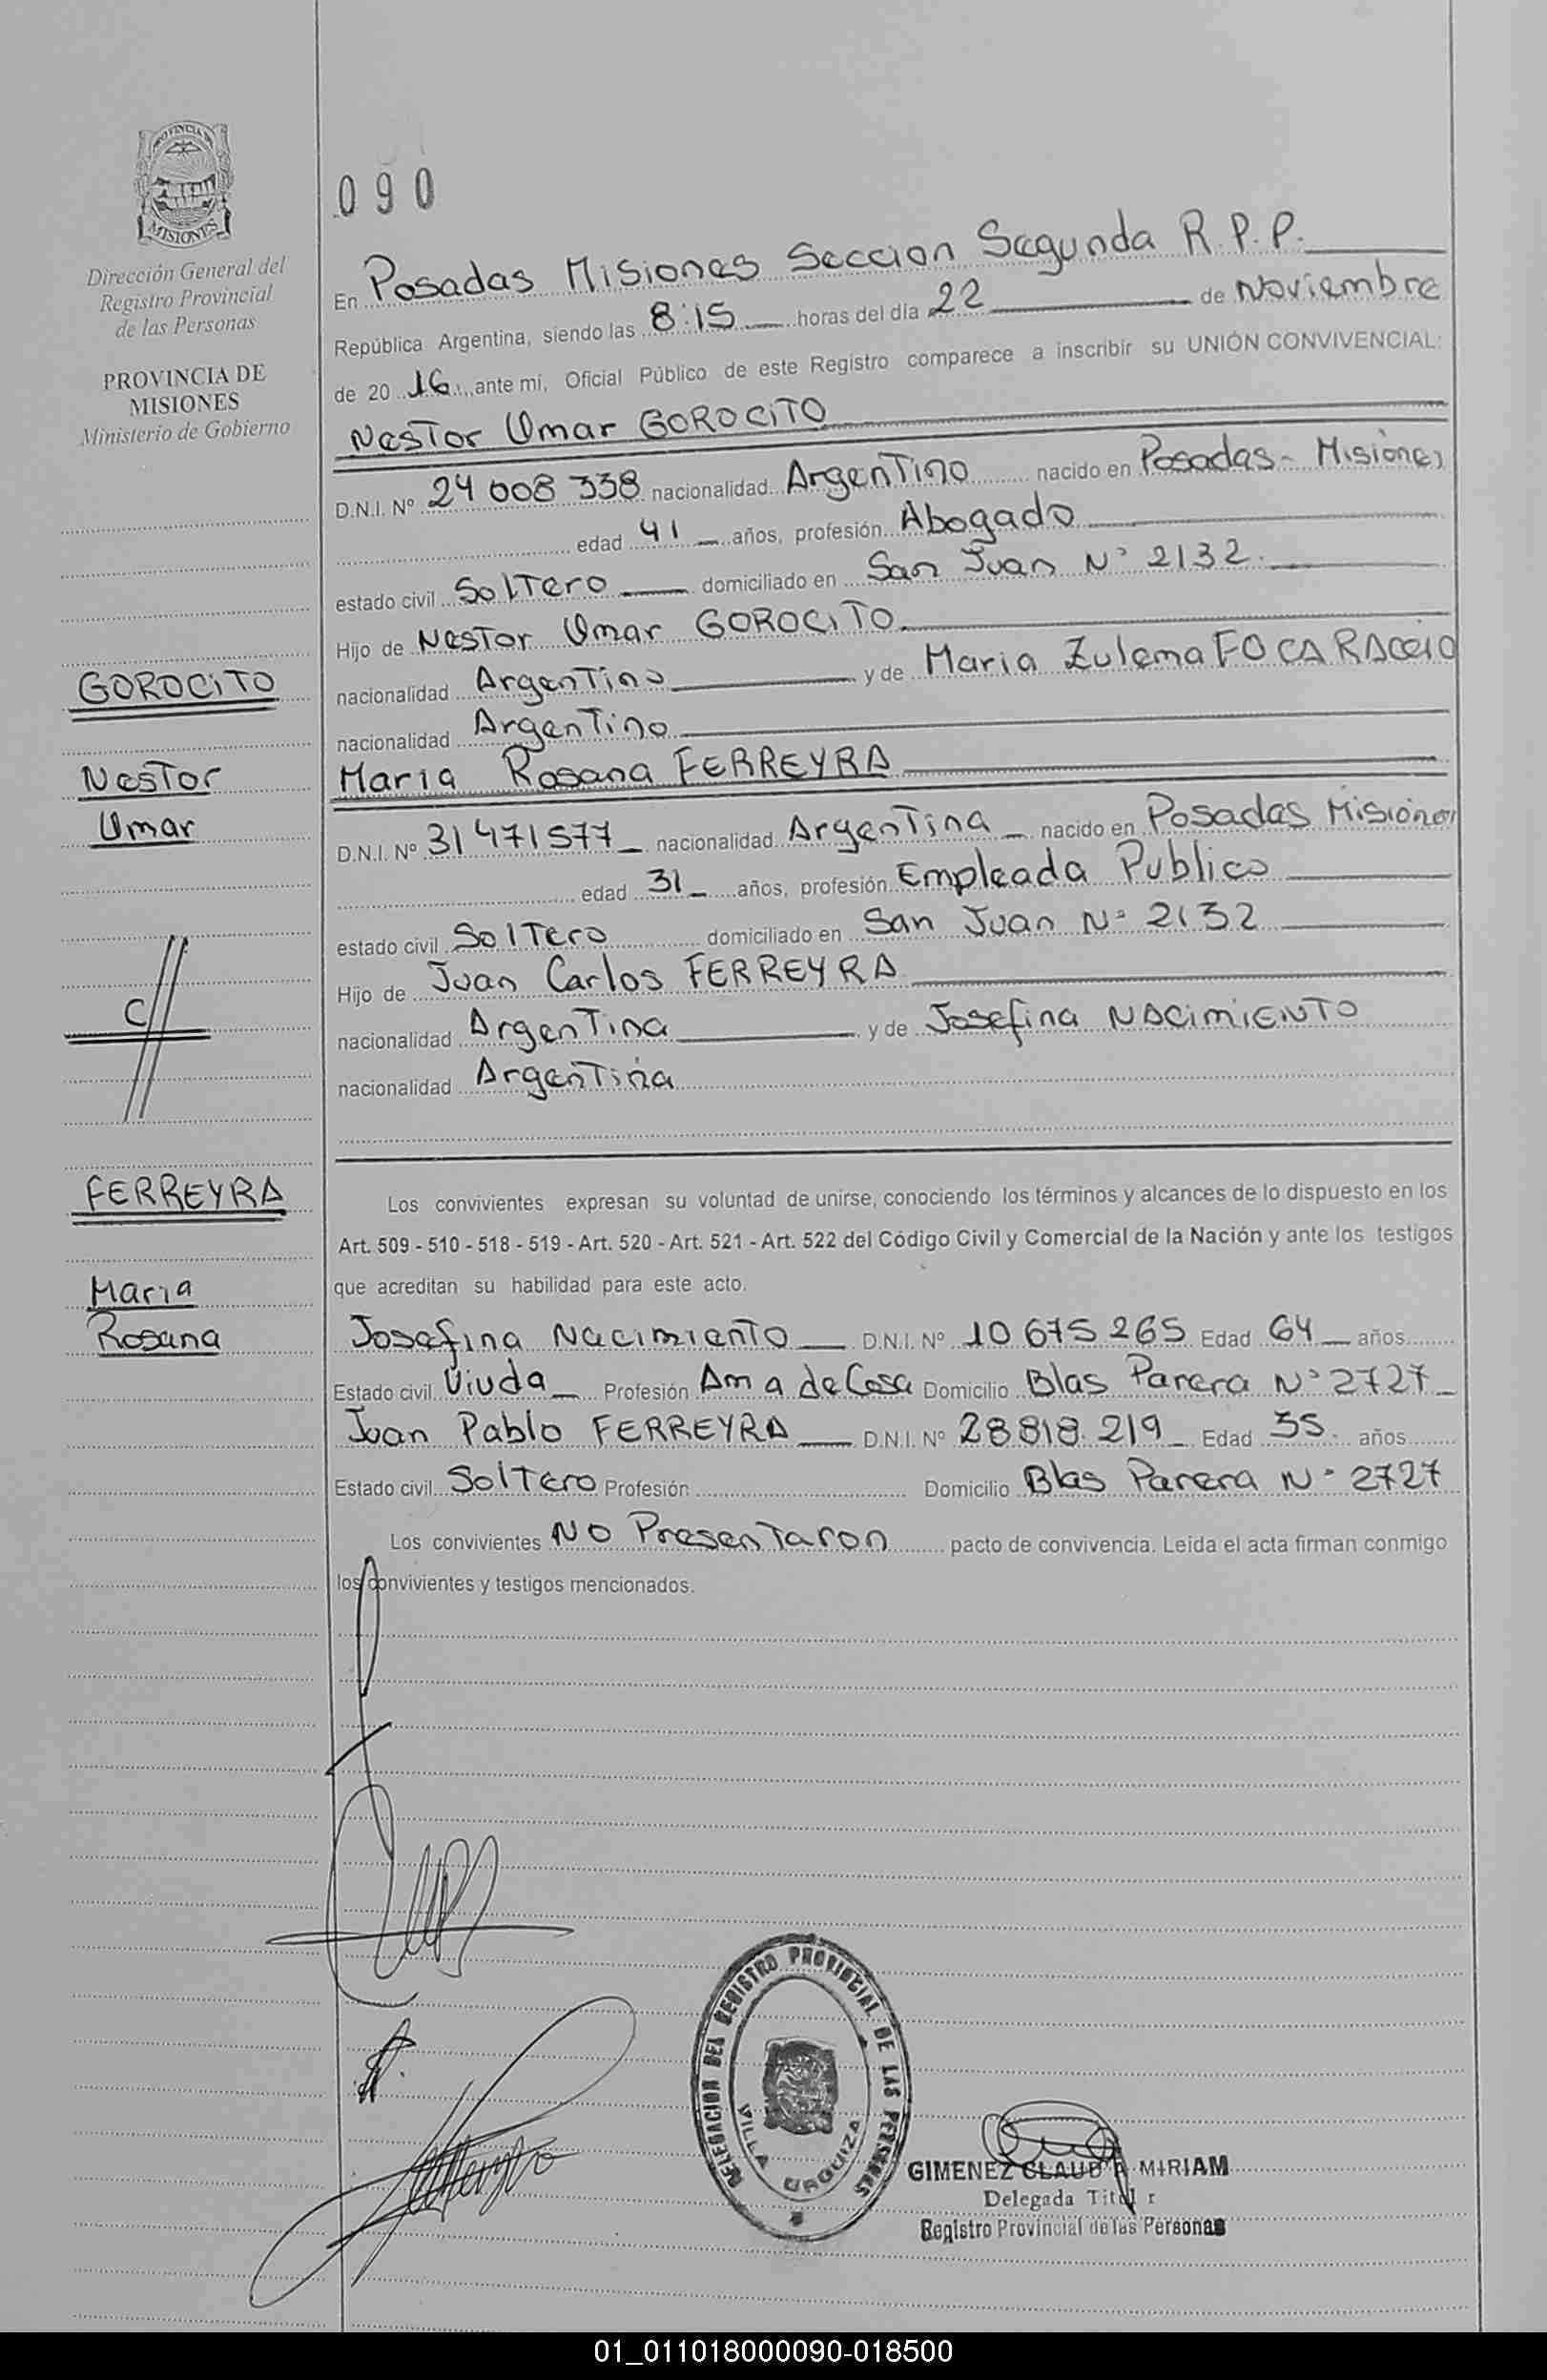 PROVINCIA DE
MISIONES
Dirección General del
Registro Provincial
de las Personas
PROVINCIA DE
MISIONES
Ministerio de Gobierno
090
En Posadas Misiones Seccion Segunda R.P.P.
República Argentina, siendo las 8:15 horas del día 22 de Noviembre
de 20 16 ante mi, Oficial Público de este Registro comparece a inscribir su UNIÓN CONVIVENCIAL:
Nestor Omar GOROCITO
D.N.I. Nº 24 008 338 nacionalidad Argentino nacido en Posadas - Misiones
edad 41 años, profesión Abogado
estado civil Soltero domiciliado en San Juan Nº 2132.
Hijo de Nestor Omar GOROCITO
nacionalidad Argentino y de Maria Zulema FOCARACCIO
nacionalidad Argentino
Maria Rosana FERREYRA
D.N.I. Nº 31471577 nacionalidad Argentina nacido en Posadas Misiones
edad 31 años, profesión Empleada Publico
estado civil Soltero domiciliado en San Juan Nº 2132
Hijo de Juan Carlos FERREYRA
nacionalidad Argentina y de Josefina NACIMIENTO
nacionalidad Argentina
GOROCITO
Nestor
Omar
C//
FERREYRA
Maria
Rosana
Los convivientes expresan su voluntad de unirse, conociendo los términos y alcances de lo dispuesto en los
Art. 509 - 510 - 518 - 519 - Art. 520 - Art. 521 - Art. 522 del Código Civil y Comercial de la Nación y ante los testigos
que acreditan su habilidad para este acto.
Josefina Nacimiento D.N.I. Nº 10 675 265 Edad 64 años
Estado civil Viuda Profesión Ama de Casa Domicilio Blas Parera Nº 2727
Juan Pablo FERREYRA D.N.I. Nº 28.818.219 Edad 35 años
Estado civil Soltero Profesión Domicilio Blas Parera Nº 2727
Los convivientes NO Presentaron pacto de convivencia. Leída el acta firman conmigo
los convivientes y testigos mencionados.
DELEGACION DEL REGISTRO PROVINCIAL DE LAS PERSONAS
VILLA URQUIZA
GIMENEZ CLAUD A MIRIAM
Delegada Tit l r
Registro Provincial de las Personas
01_011018000090-018500